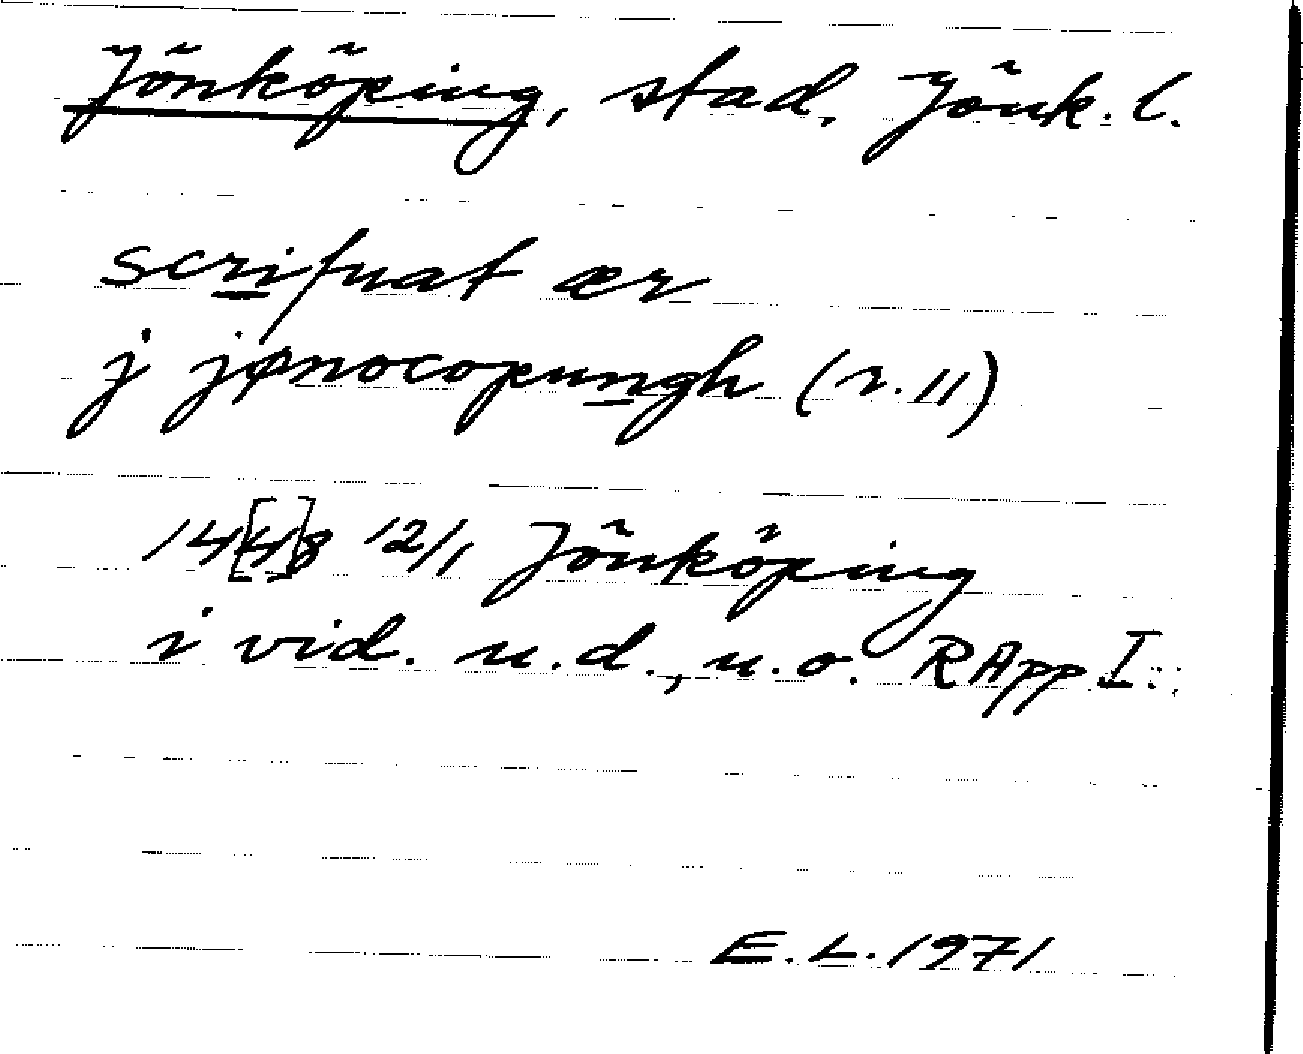 Jönköping, stad, Jönk. l.
scrifuat ær
j jønocopungh (r. 11)
14[4]8 12/1 Jönköping
i vid. u.d., u.o. RApp I::
E.L. 1971